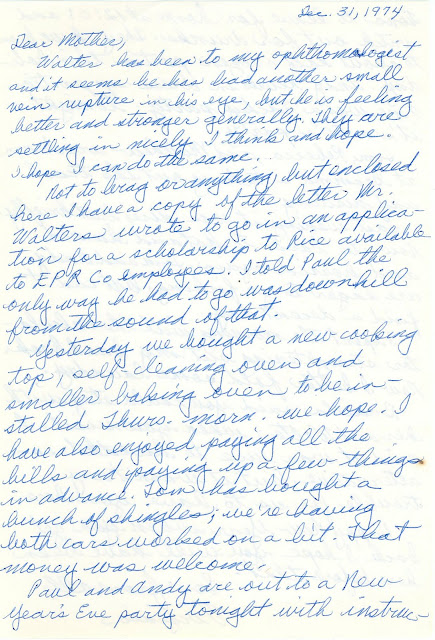 Dec. 31, 1974
Dear Mother,
Walter has been to my ophthomologist
and it seems he has had another small
vein rupture in his eye, but he is feeling
better and stronger generally. They are
settling in nicely I think and hope.
I hope I can do the same.
Not to brag or anything, but enclosed
here I have a copy of the letter Mr.
Walters wrote to go in an applica-
tion for a scholarship to Rice available
to EPR Co employees. I told Paul the
only way he had to go was downhill
from the sound of that.
Yesterday we bought a new cooking
top, self-cleaning oven and
smaller baking oven to be in-
stalled Thurs. morn. we hope. I
have also enjoyed paying all the
bills and paying up a few things
in advance. Tom has bought a
bunch of shingles; we're having
both cars worked on a bit. That
money was welcome.
Paul and Andy are out to a New
Year's Eve party tonight with instruc-